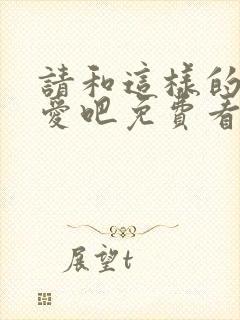 請和這樣的
愛吧免費看
展望t